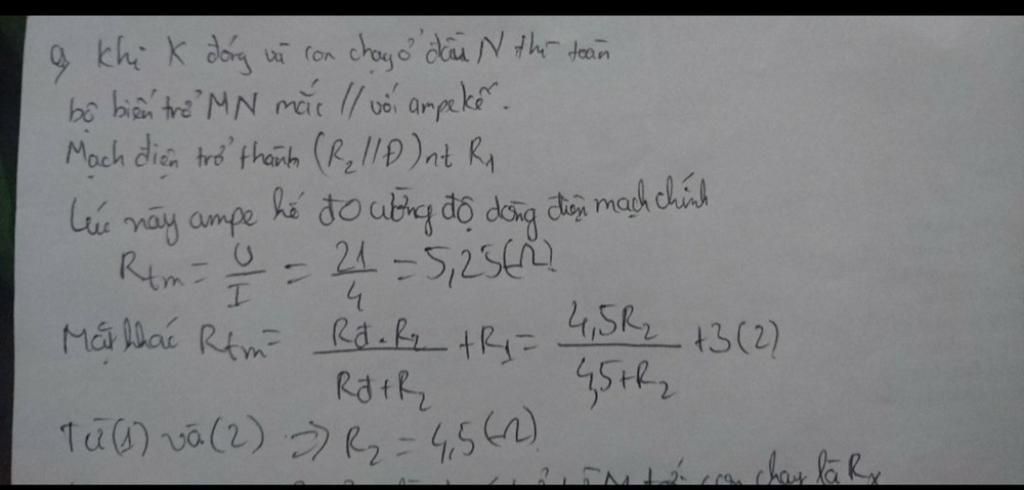 a, Khi K đóng và con chạy ở đầu N thì toàn
bộ biến trở MN mắc // với ampe kế.
Mạch điện trở thành (R₂//Đ) nt R₁
Lúc này ampe kế đo cường độ dòng điện mạch chính
Rtm = U/I = 21/4 = 5,25(Ω)
Mặt khác Rtm = Rđ.R₂/Rđ+R₂ + R₁ = 4,5R₂/4,5+R₂ + 3 (2)
Từ (1) và (2) => R₂ = 4,5(Ω)
con chạy là Rx